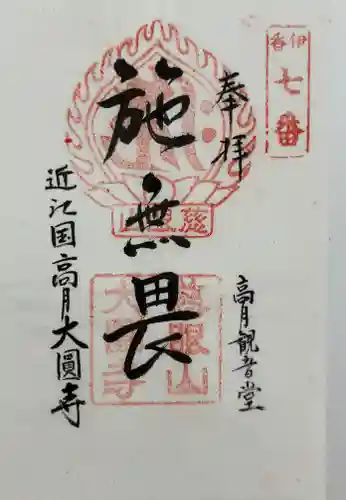 伊香
七番
奉拝
高月観音堂
施無畏
近江国高月大圓寺
慈眼山
大圓寺